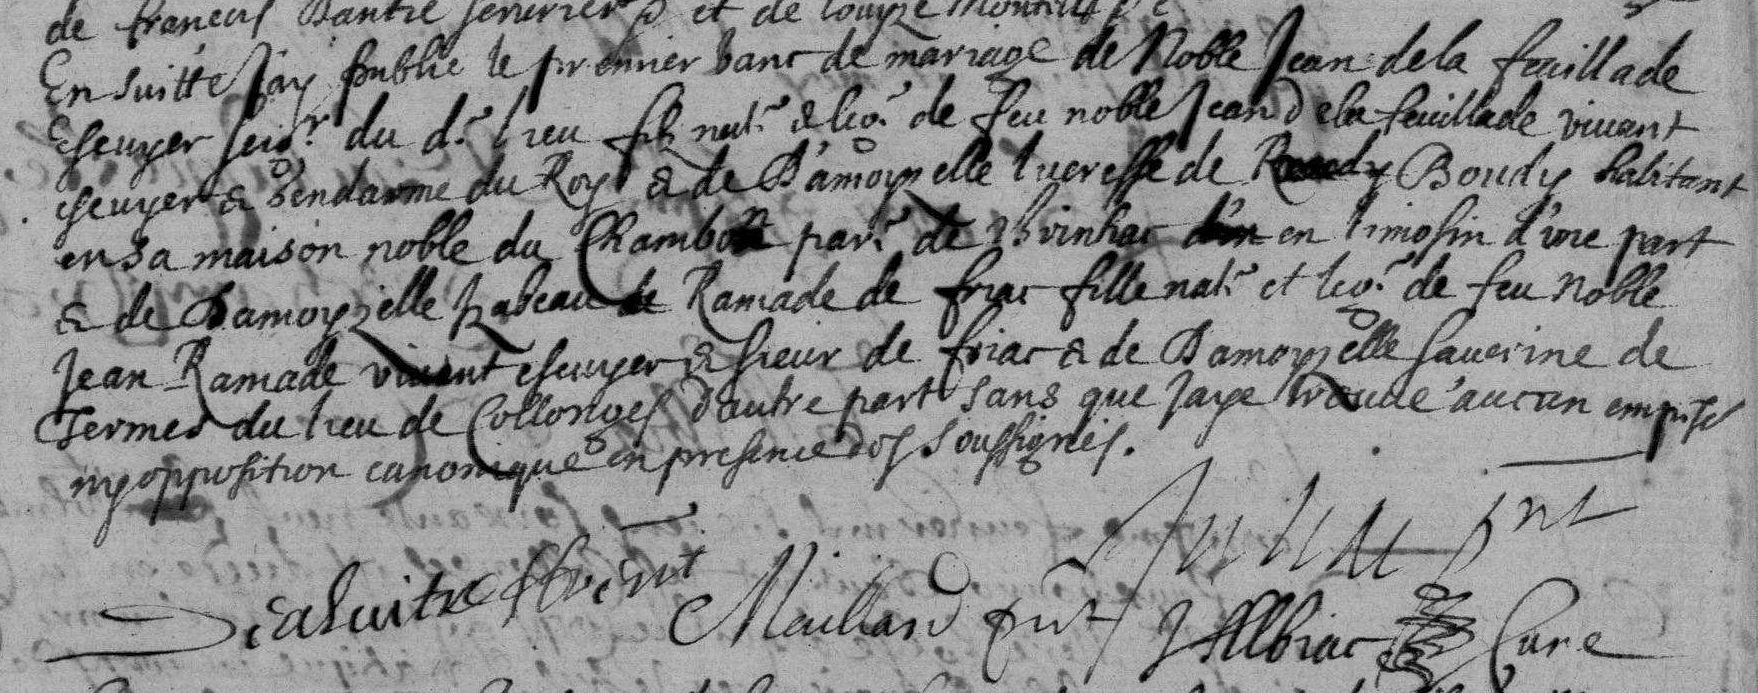 de françois Dantre serrurier et de Louyze
Ensuitte Jay publie le premier banc de mariage de Noble Jean de la feuillade
escuyer seigr. du d. lieu fils nat. & leg. de feu noble Jean de la feuillade vivant
escuyer & gendarme du Roy & de Damoyzelle lucresse de Boudy habitant
en sa maison noble du Chambon par. de en limosin d'une part
& de Damoyzelle Izabeau de Ramade de friac fille nat. et leg. de feu Noble
Jean Ramade vivant escuyer & sieur de friac & de Damoyzelle Saverine de
Termes du lieu de Collonges d'autre part sans que Jaye trouve aucun
ny opposition canonique en presence des soussignés.
prnt
Delavitre prent Maillard prnt J Albiac Cure